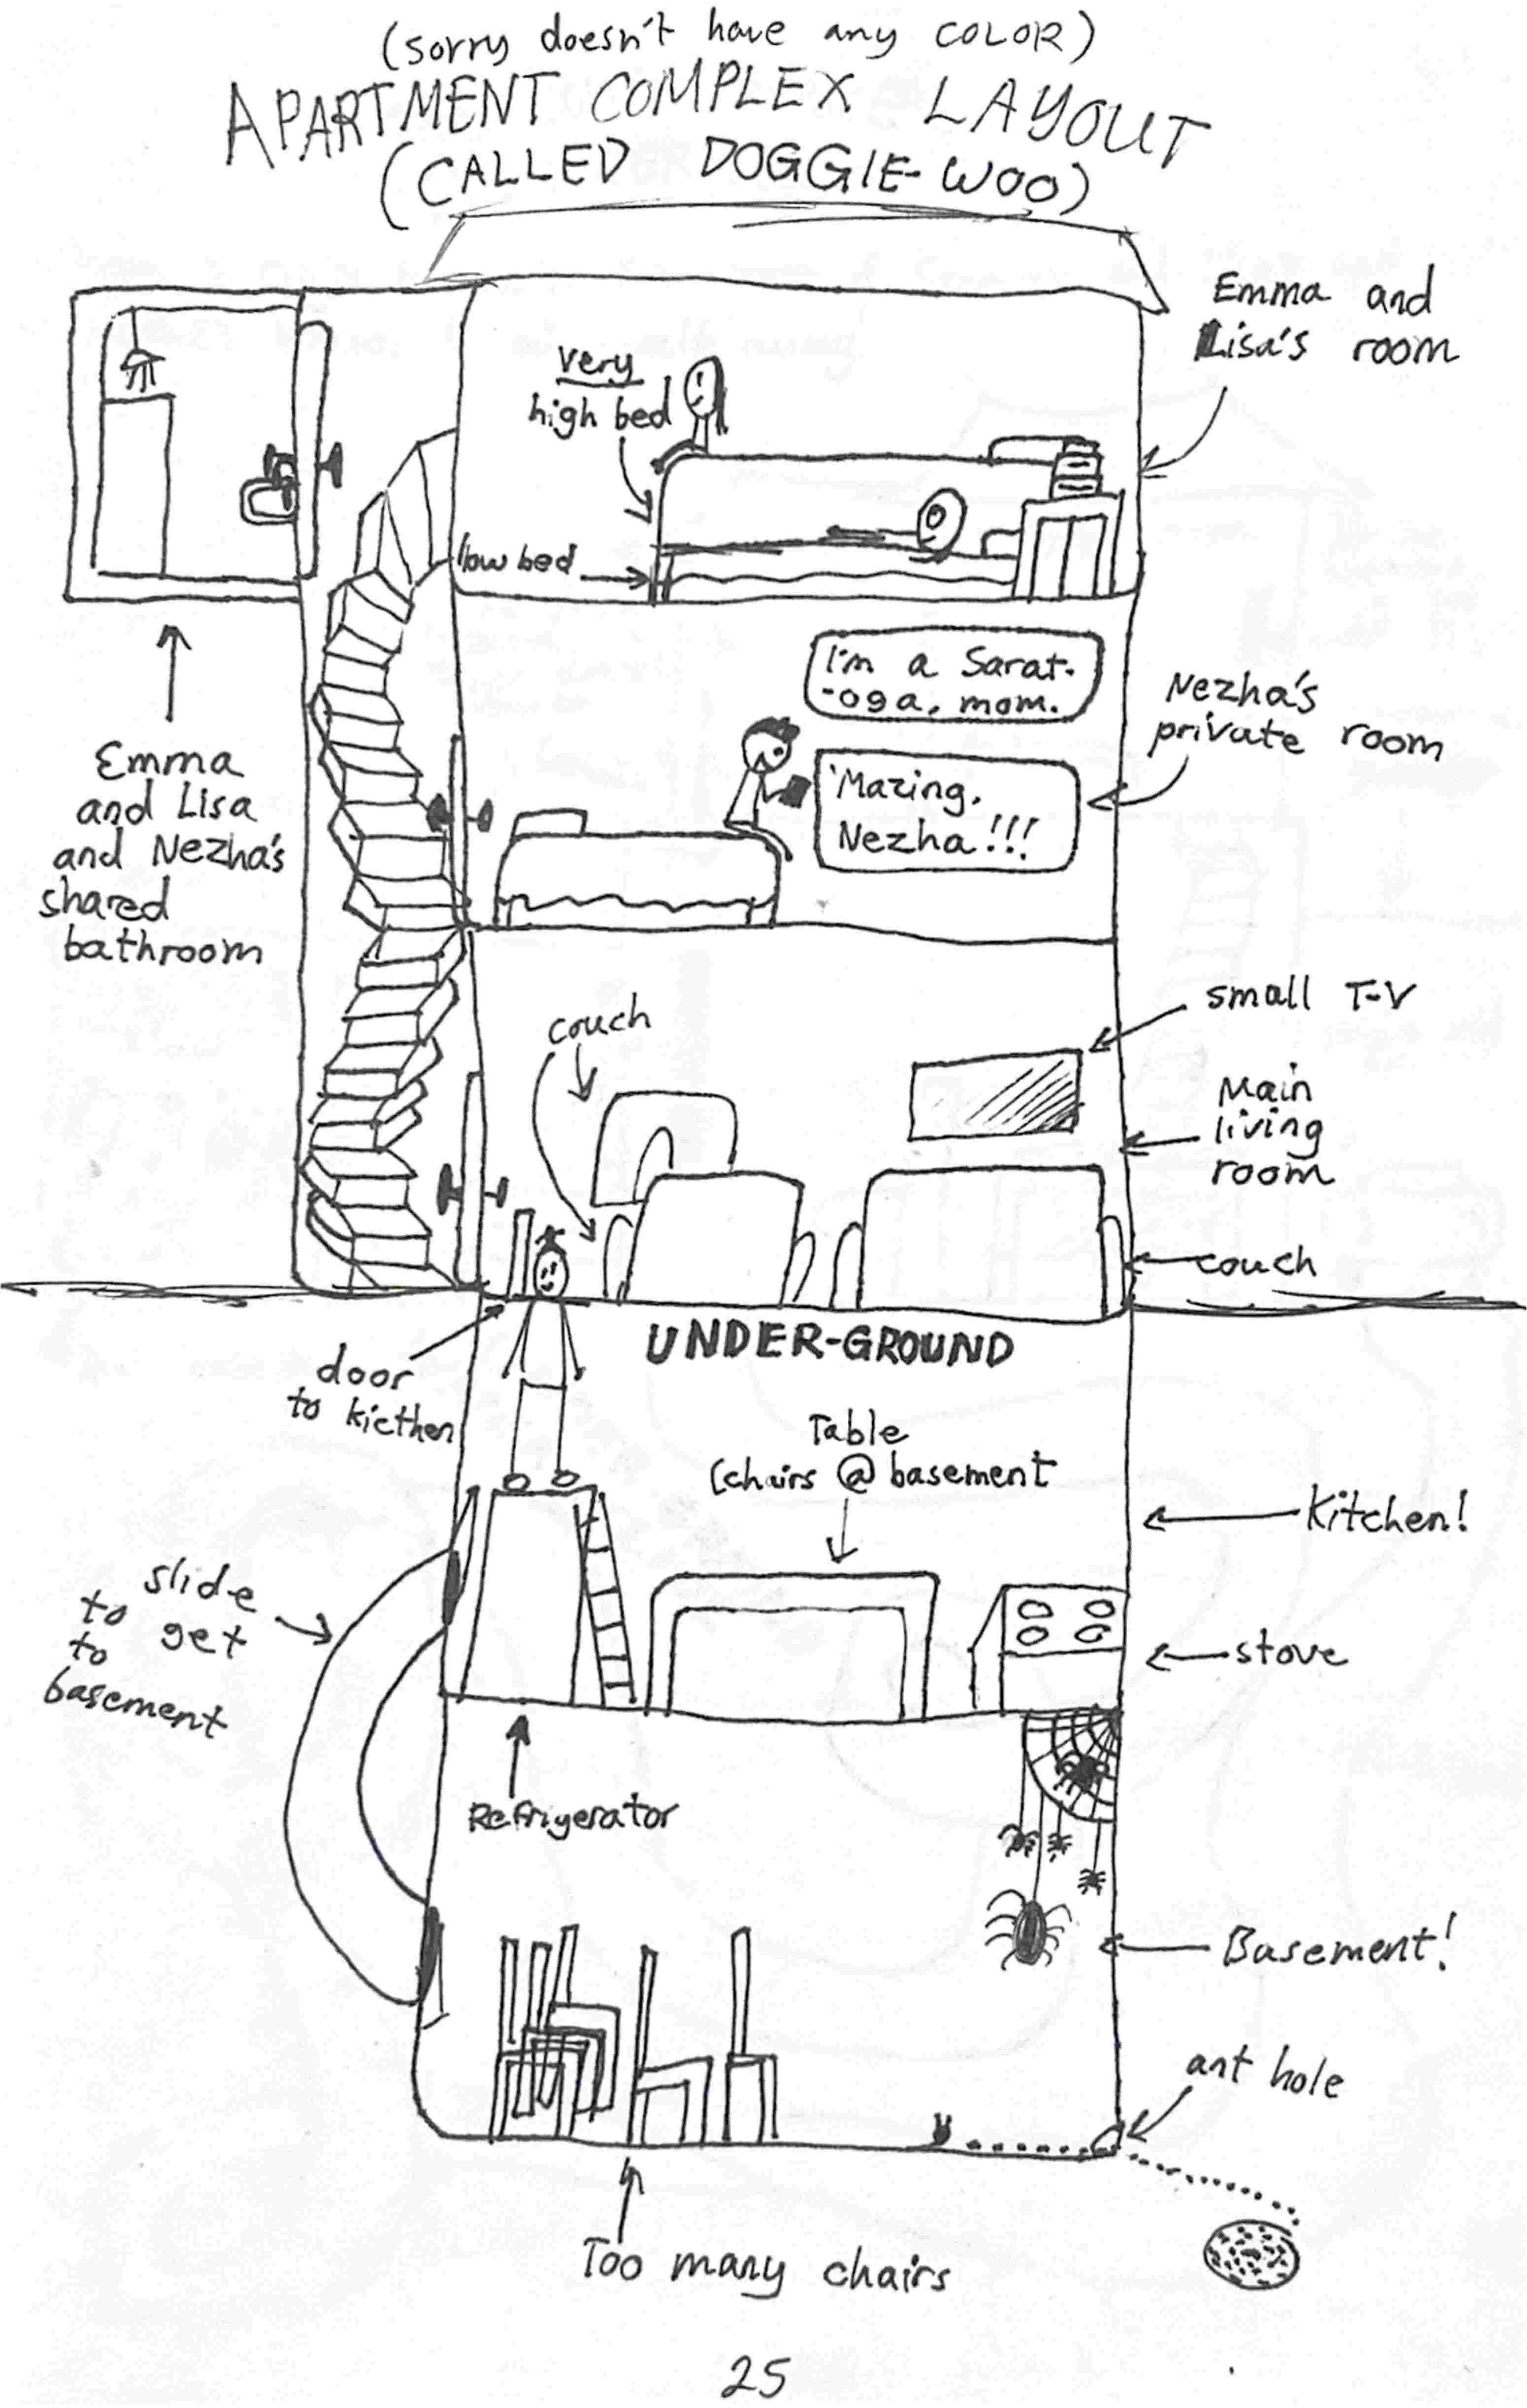 (sorry doesn't have any COLOR)
APARTMENT COMPLEX LAYOUT
(CALLED DOGGIE-WOO)
Emma and
Lisa's room
very
high bed
low bed
I'm a Sarat-
-oga, mom.
Nezha's
private room
'Mazing,
Nezha!!!
Emma
and Lisa
and Nezha's
shared
bathroom
small T-V
couch
Main
living
room
couch
UNDER-GROUND
door
to kicthen
Table
(chairs @ basement
Kitchen!
slide
to get
to
basement
stove
Refrigerator
Basement!
ant hole
Too many chairs
25